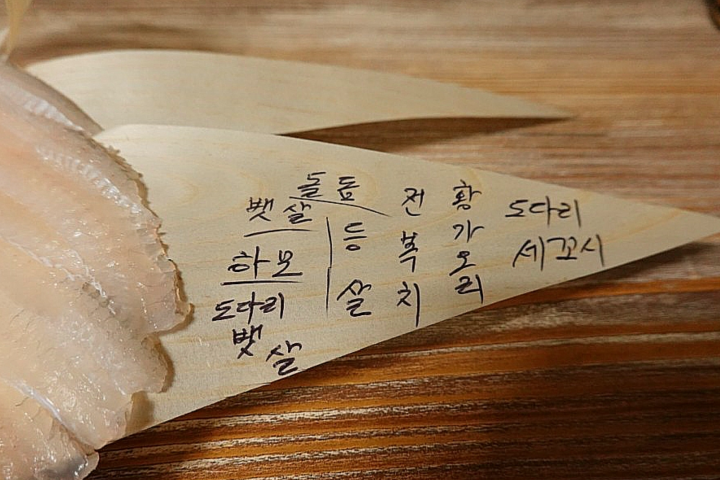 돌돔
뱃살
등살
하모
도다리
뱃살
전복치
황가오리
도다리
세꼬시